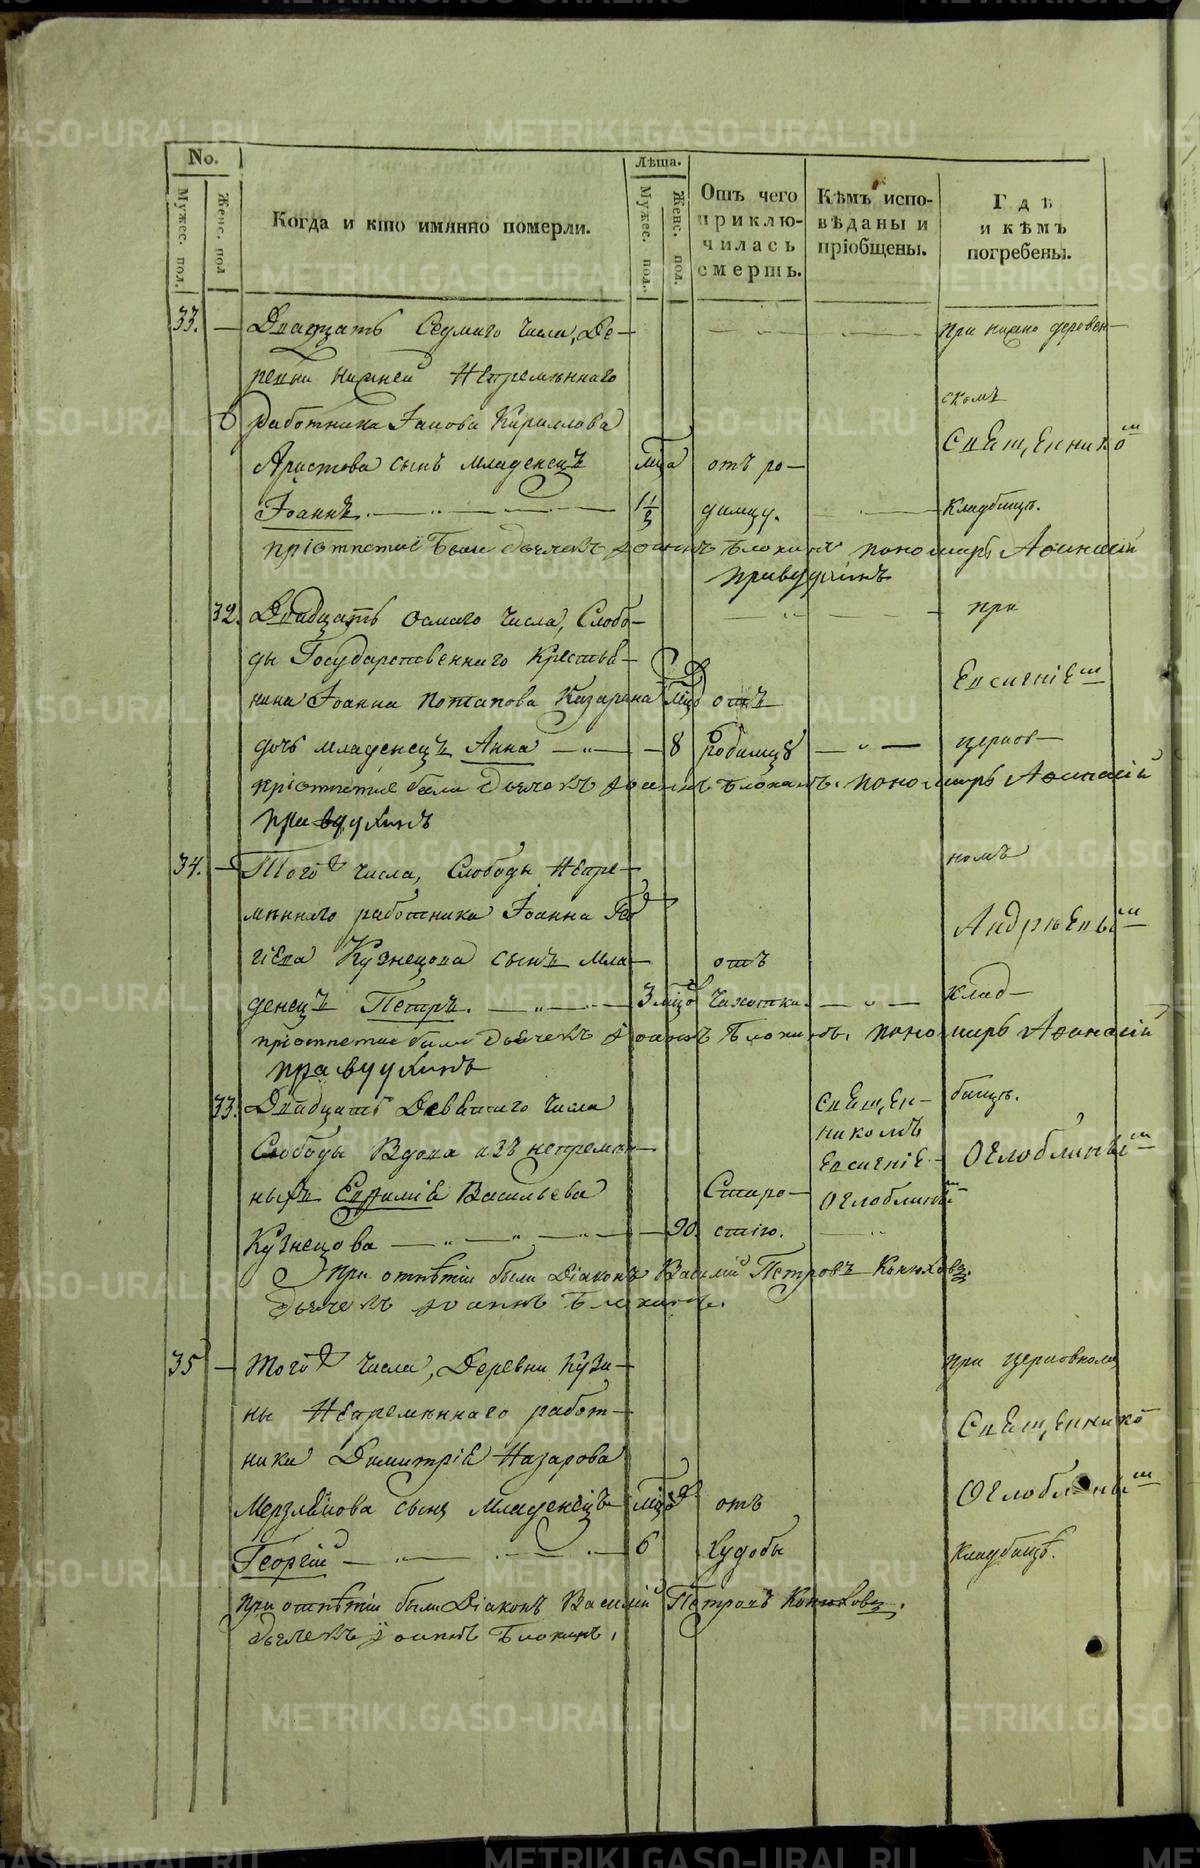 No.
Мужес. пол.
Женс. пол
Когда и кто имянно померли.
Лѣта.
Мужес. пол.
Женс. пол.
Отъ чего приклю-
чилась
смерть.
Кѣмъ испо-
вѣданы и
пріобщены.
Гдѣ
и кѣмъ
погребены.
33. — Двадцать Седмаго числа, Де-
ревни Нижней Непремѣннаго
работника Іакова Кириллова
Аристова сынъ младенецъ
Іоаннъ.
мца
1½
отъ ро-
димцу.
при нижно деревен-
скомъ
Священнико
Кладбищъ.
приотпетие были дьячекъ Іоаннъ Блохинъ пономарь Афанасій
правдухинъ
32. Двадцать Осмаго числа, Слобо-
ды Государственнаго Крестья-
нина Іоанна Потапова Казарина
дочь младенецъ Анна
8
отъ
родимцу
при
Евсигніемъ
церков-
приотпетие были дьячекъ Іоаннъ Блохинъ. пономарь Афанасій
правдухинъ
34. — Того числа, Слободы Непре-
мѣннаго работника Іоанна Ге
гіева Кузнецова сынъ Мла-
денецъ Петръ.
3 мцо
отъ
чахотки.
номъ
Андрѣевы
клад-
приотпетие были дьячекъ Іоаннъ Блохинъ. пономарь Афанасій
правдухинъ
33. Двадцать Девятаго числа
Слободы Вдова изъ непремѣн-
ныхъ Евфимія Васильева
Кузнецова
90.
Старо-
стію.
Священ-
никомъ
Евсигніе-
Оглоблины
бищъ.
Оглоблины
При отпѣтіи были Діаконъ Василій Петровъ Конюховъ.
дьячекъ Іоаннъ Блохинъ.
35 — Того числа, Деревни Кузи-
ны Непремѣннаго работ-
ника Димитрія Назарова
Мерзлякова сынъ Младенецъ
Георгій
6
отъ
худобы
при церковномъ
Священнико
Оглоблины
Кладбищъ.
При отпѣтіи были Діаконъ Василій Петровъ Конюховъ.
дьячекъ Іоаннъ Блохинъ.
METRIKI.GASO-URAL.RU